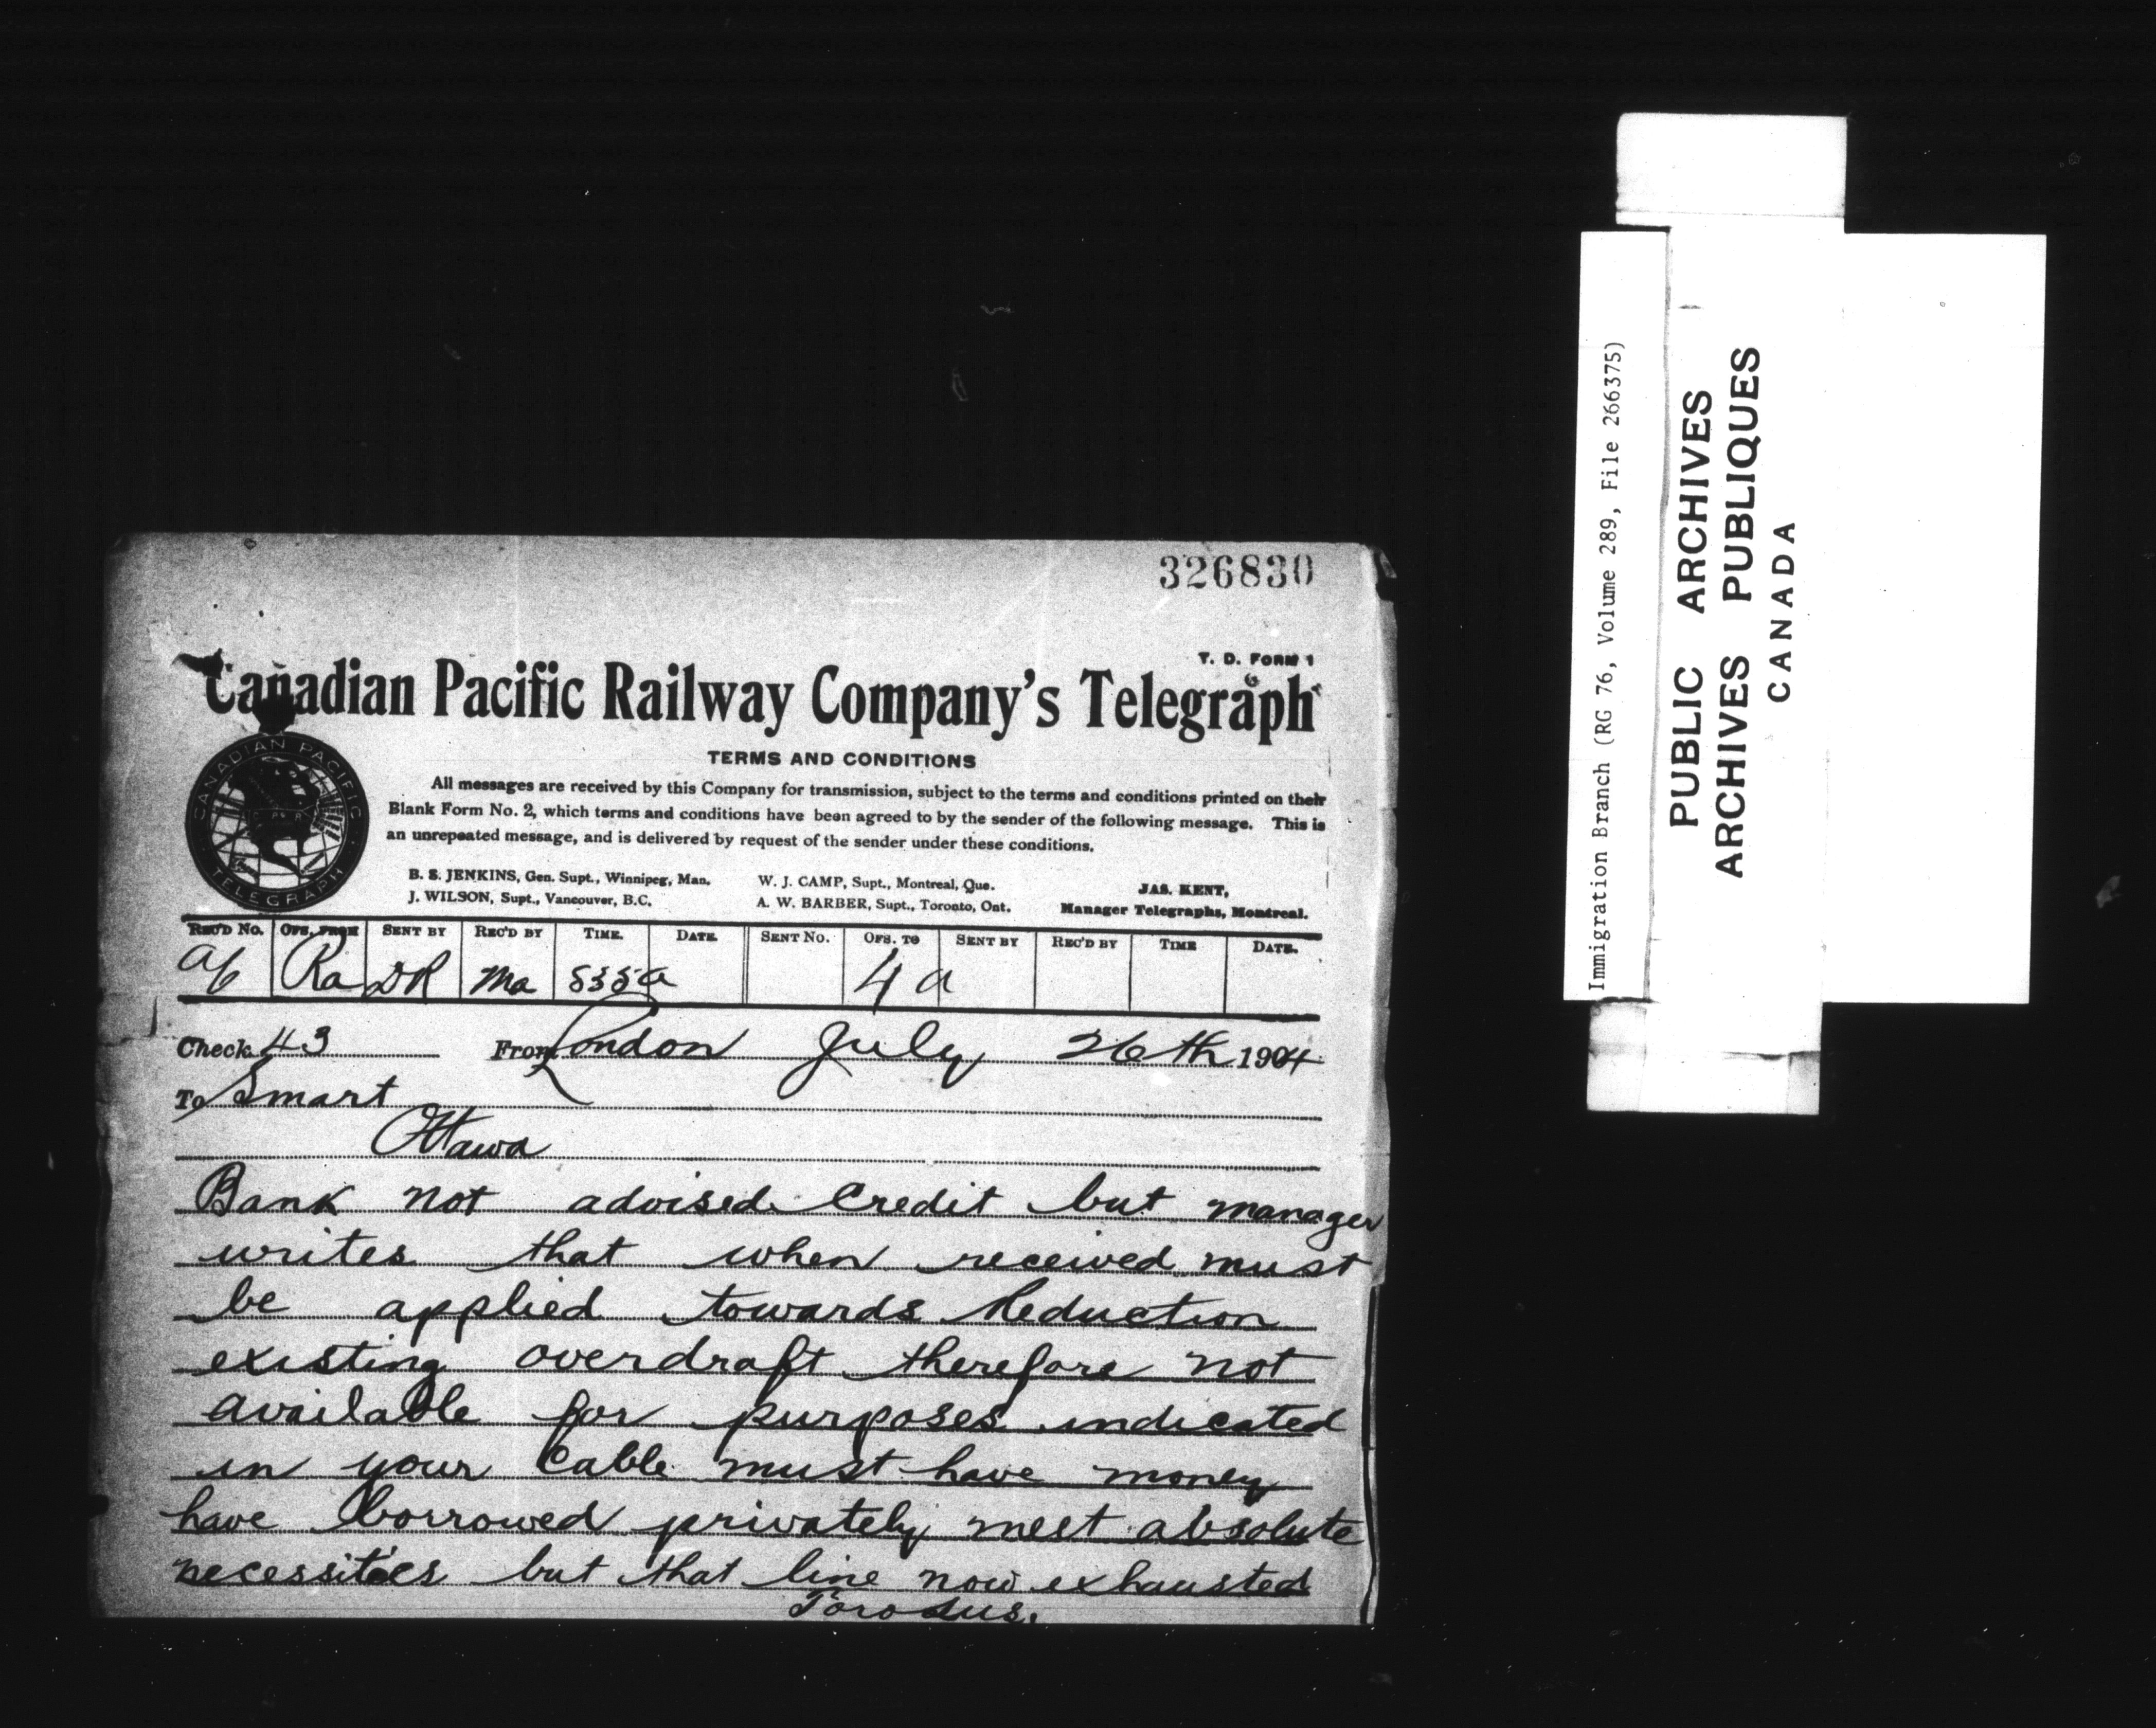 326830
T. D. FORM 1
Canadian Pacific Railway Company's Telegraph
TERMS AND CONDITIONS
All messages are received by this Company for transmission, subject to the terms and conditions printed on their
Blank Form No. 2, which terms and conditions have been agreed to by the sender of the following message. This is
an unrepeated message, and is delivered by request of the sender under these conditions.
CANADIAN PACIFIC
TELEGRAPH
B. S. JENKINS, Gen. Supt., Winnipeg, Man.
J. WILSON, Supt., Vancouver, B.C.
W. J. CAMP, Supt., Montreal, Que.
A. W. BARBER, Supt., Toronto, Ont.
JAS. KENT,
Manager Telegraphs, Montreal.
REC'D No. OFS. FROM SENT BY REC'D BY TIME. DATE. SENT No. OFS. TO SENT BY REC'D BY TIME DATE.
Ra DR Ma 535a 4 a
Check 43 From London July 26th 1904
To Smart
Ottawa
Bank not advised credit but manager
writes that when received must
be applied towards reduction
existing overdraft therefore not
available for purposes indicated
in your cable must have money
have borrowed privately meet absolute
necessities but that line now exhausted
Immigration Branch (RG 76, Volume 289, File 266375)
PUBLIC ARCHIVES
ARCHIVES PUBLIQUES
CANADA